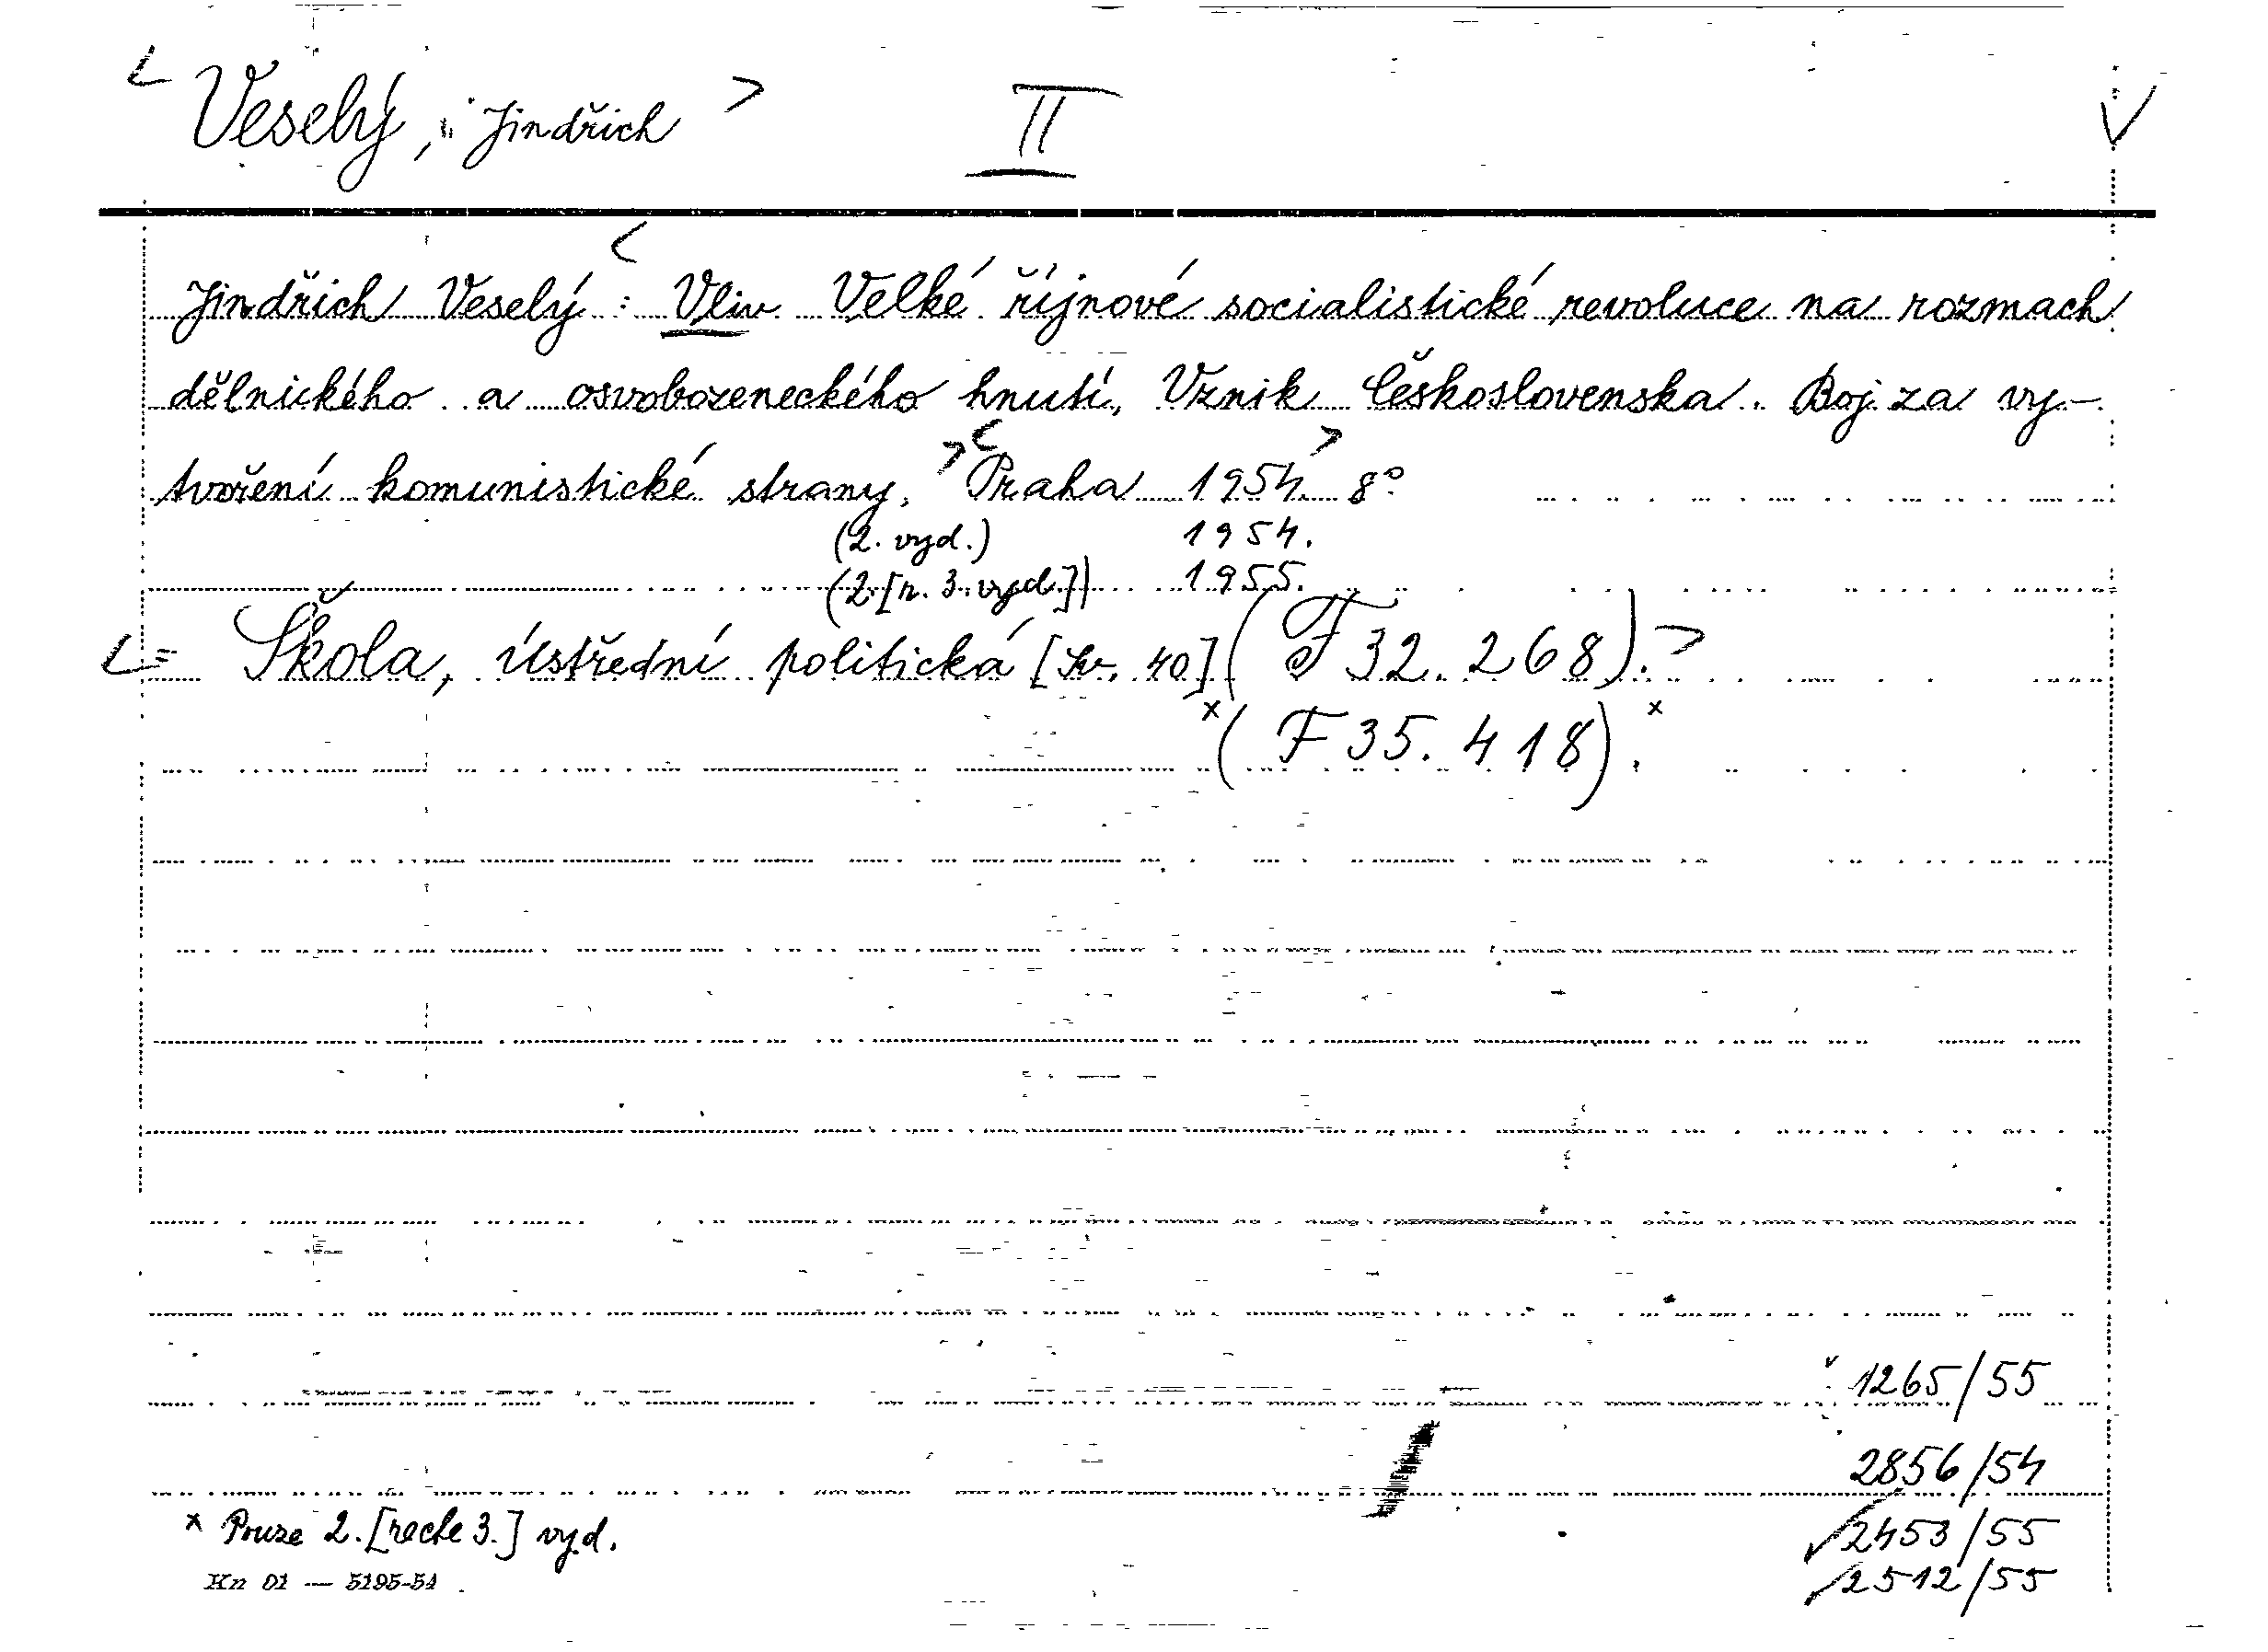 < Veselý, Jindřich > II V
Jindřich Veselý : < Vliv Velké říjnové socialistické revoluce na rozmach
dělnického a osvobozeneckého hnutí, Vznik Československa. Boj za vy-
tvoření komunistické strany. > < Praha 1954. > 8°
(2. vyd.) 1954.
(2. [r. 3. vyd.]) 1955.
< = Škola, Ústřední politická [Sv. 40] (F 32.268). >
x (F 35.418). x
1265/55
2856/54
2453/55
x Pouze 2. [recte 3.] vyd.
2512/55
Kn 01 — 5195-54